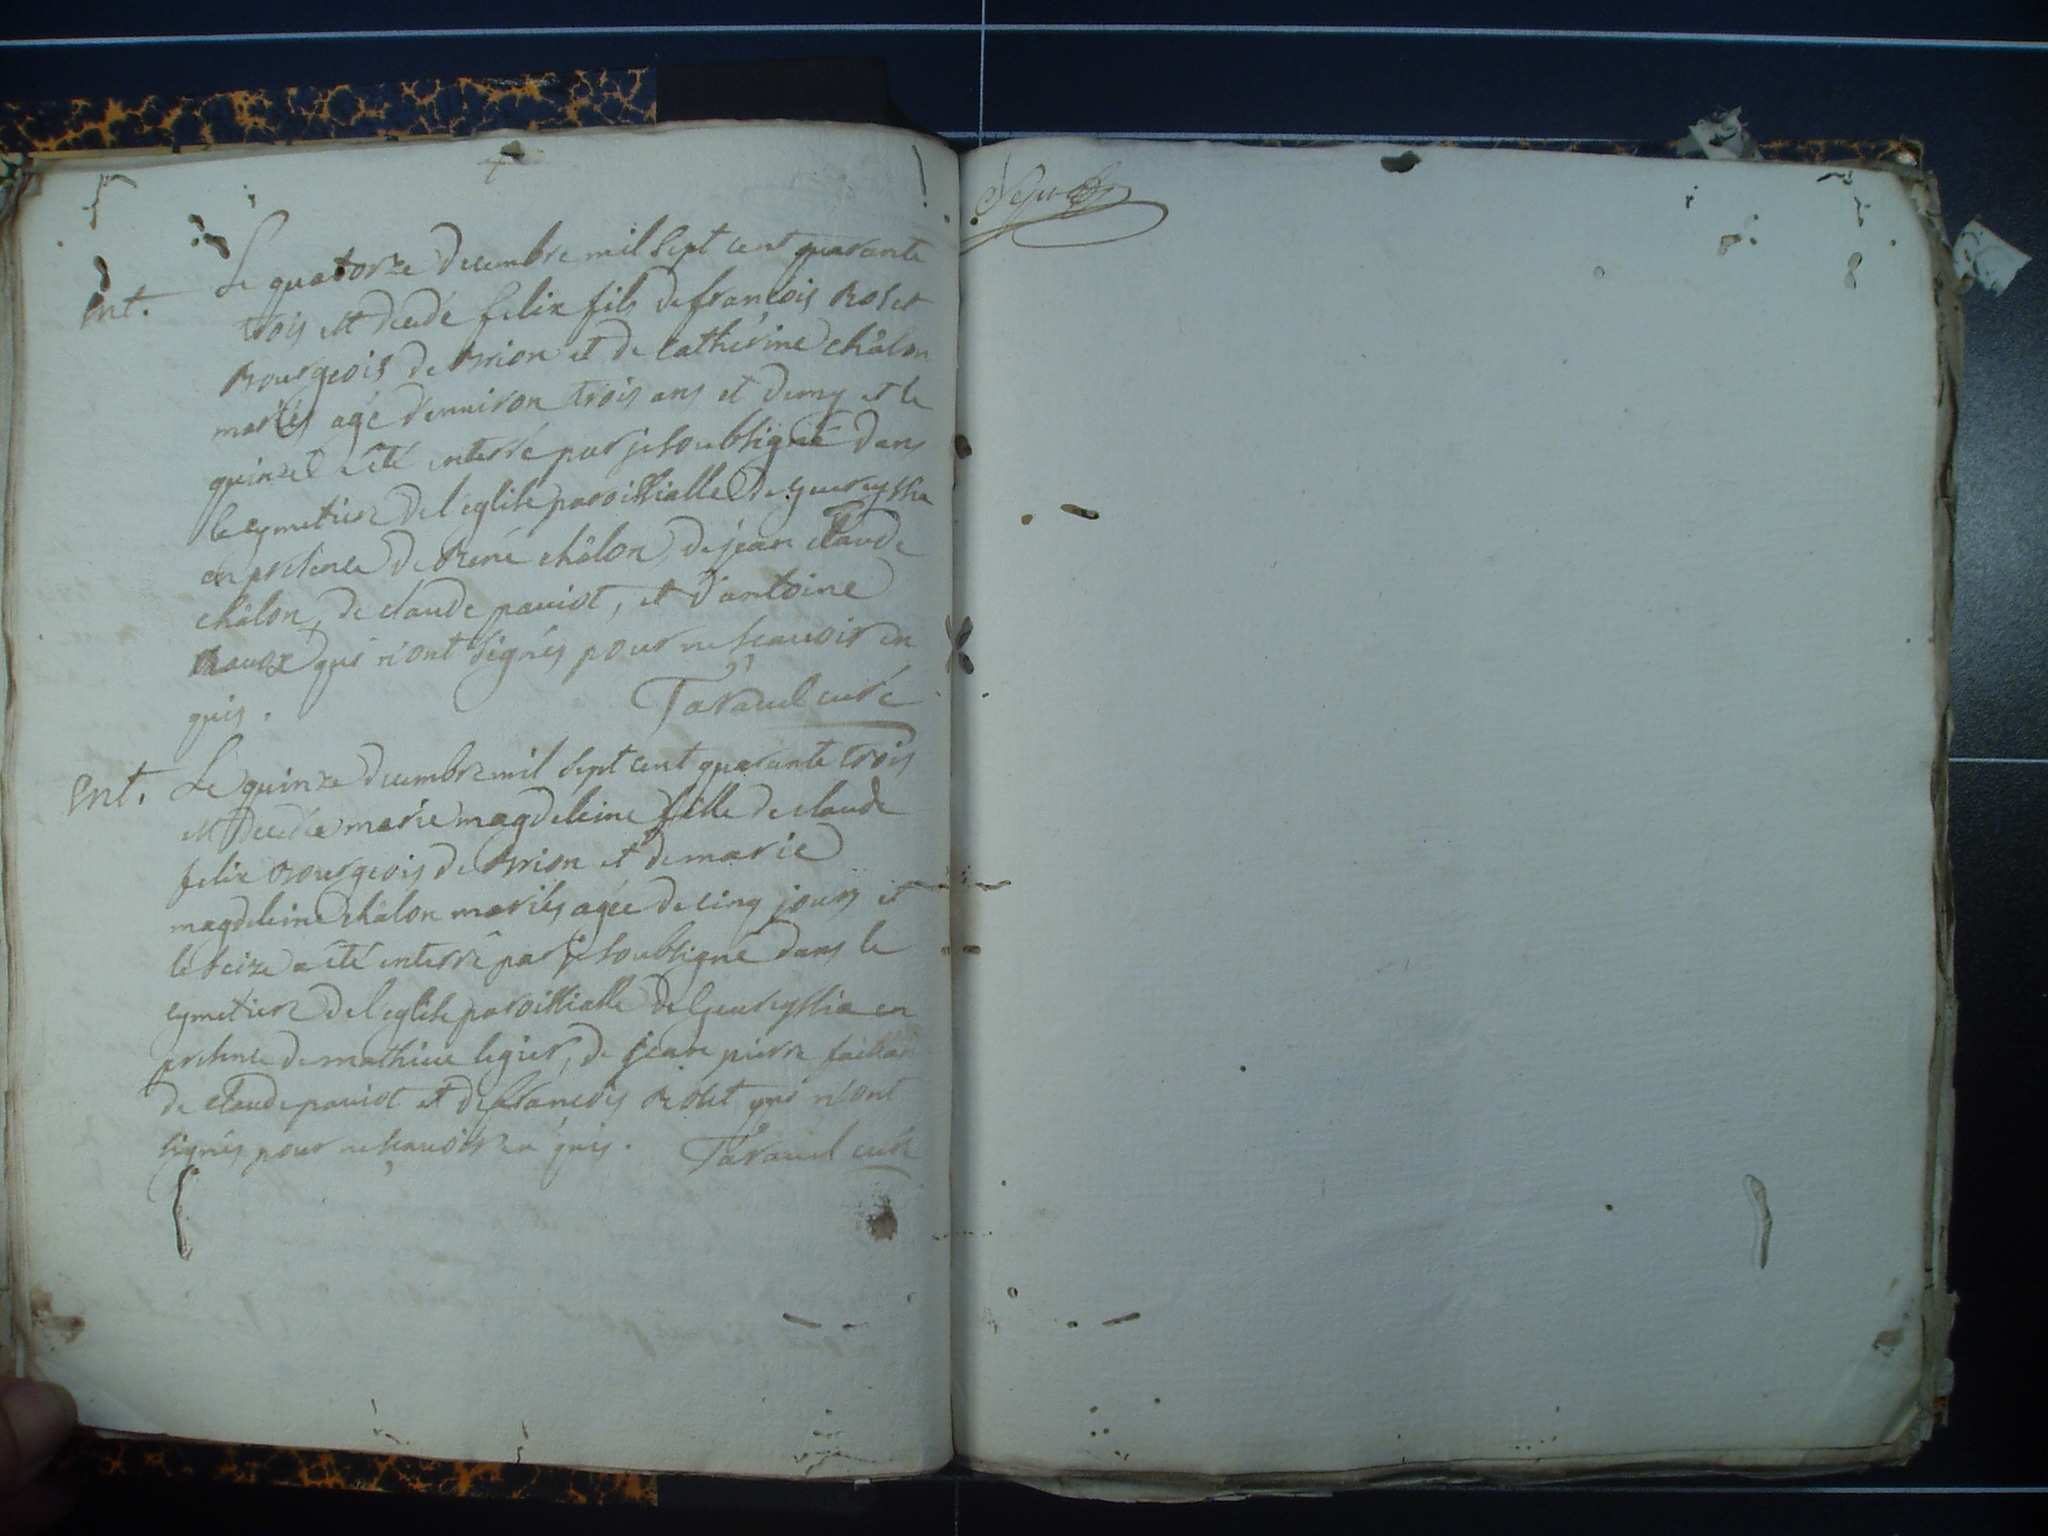 Ent.
Le quatorze decembre mil sept cent quarante
trois est decedé felix fils de françois Rolet
Bourgeois de Brion et de catherine châlon
mariés agé d'environ trois ans et demy et le
quinze a été enterré par je soubsigné dans
le cymetiere de l'eglise paroissialle de Gueureyssia
en presence de René châlon, de jean claude
châlon, de claude paviot, et d'antoine
Ravoz qui n'ont signés pour ne scavoir en
quis.
Taravel curé
Ent.
Le quinze decembre mil sept cent quarante trois
est decedée marie magdeleine fille de claude
felix Bourgeois de Brion et de marie
magdeleine châlon mariés agée de cinq jours et
le seize a été enterré par je soubsigné dans le
cymetiere de l'eglise paroissialle de Gueureyssia en
presence de mathieu legier, de jean pierre
de claude paviot et de françois Rolet qui n'ont
signés pour ne scavoir en quis.
Taravel curé